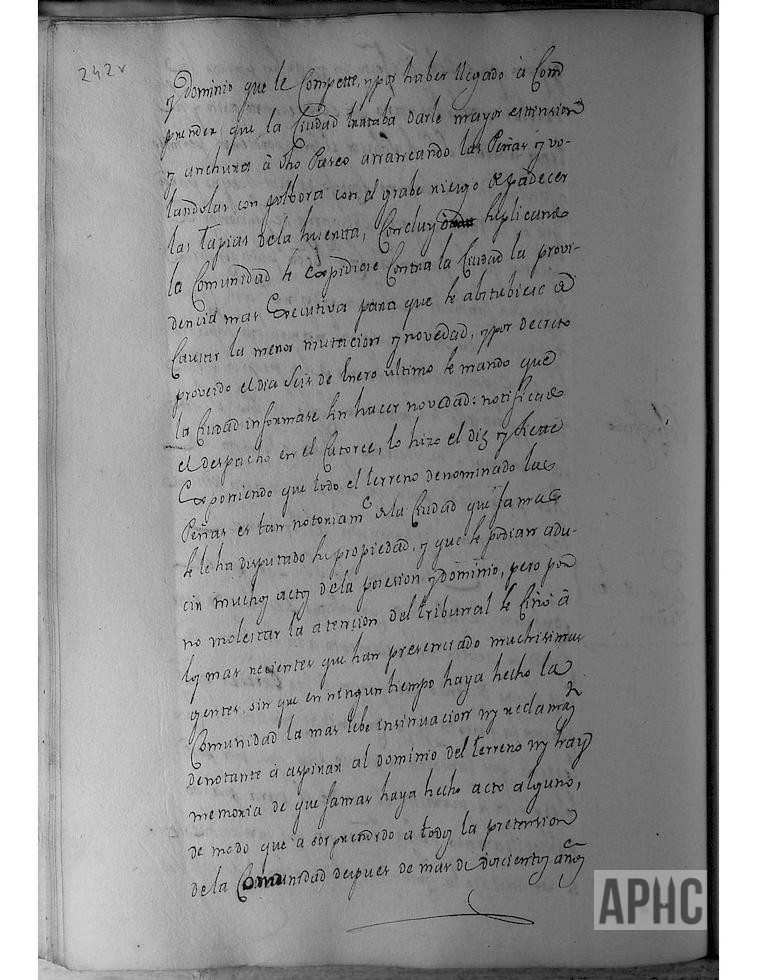 242v
y dominio que le Compette, y por haber llegado à Com
prender, que la Ciudad trataba darle mayor esttension
y anchura à dho Paseo arrancando las Peñas y vo-
landolas con polbora con el grabe riesgo de padecer
las tapias dela huertta, Concluy suplicando
la Comunidad se expidiese Contra la Ciudad la provi-
dencia mas Executiva para que se abstubiese de
Causar la menor mutacion y novedad, y por decreto
proveido el dia Seis de Enero ultimo se mando que
la Ciudad informase sin hacer novedad: notificado
el despacho en el Catorce, lo hizo el diez y siette
Exponiendo que todo el terreno denominado las
Peñas es tan notoriamte dela Ciudad que jamas
se le ha disputado su propiedad, y que se podian adu-
cir muchos actos dela posesion y dominio, pero por
no molestar la atencion del tribunal se Ciñó à
los mas recientes que han presenciado muchisimas
gentes, sin que en ningun tiempo haya hecho la
Comunidad la mas lebe insinuacion ny reclamazn
denotante á aspirar al dominio del terreno ny hay
memoria de que jamas haya hecho acto alguno,
de modo que a sorprendido a todos la pretension
dela Comunidad despues de mas de doscientos años
APHC